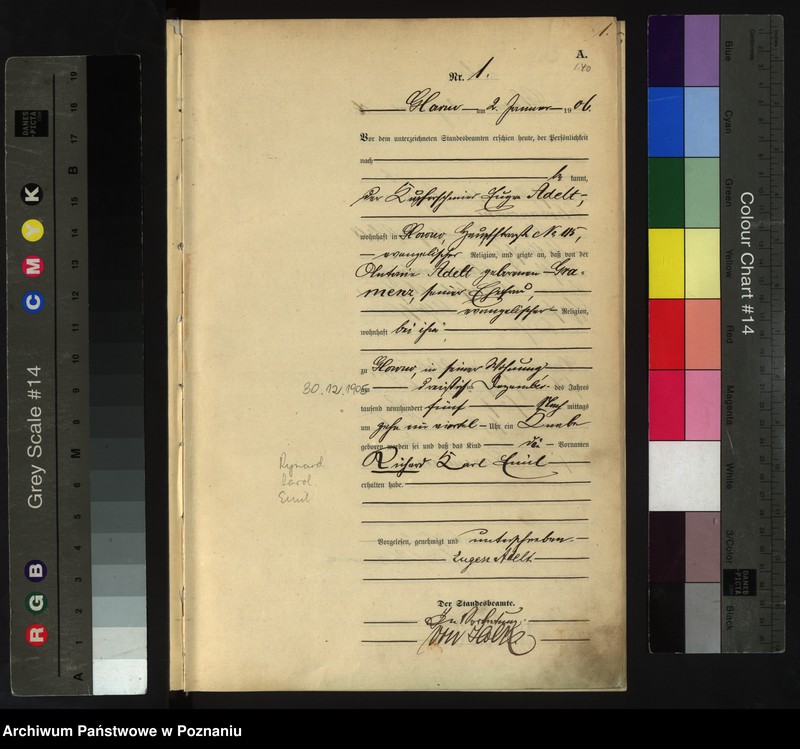 1.
A.
140
Nr. 1.
am 2. Januar 1906.
Vor dem unterzeichneten Standesbeamten erschien heute, der Persönlichkeit
nach
be kannt,
der Kupferschmied Eugen Adelt,
wohnhaft in Hauptstraße No 115,
evangelischer Religion, und zeigte an, daß von der
Antonie Adelt geborenen Gra-
menz, seiner Ehefrau,
evangelischer Religion,
wohnhaft bei ihm,
zu in seiner Wohnung
30.12.1905
am dreißigsten Dezember des Jahres
tausend neunhundert fünf Nach mittags
um zehn ein viertel Uhr ein Knabe
geboren worden sei und daß das Kind die Vornamen
Richard Karl Emil
Ryszard
Karol
Emil
erhalten habe.
Vorgelesen, genehmigt und unterschrieben.
Eugen Adelt
Der Standesbeamte.
In Vertretung.
Grey Scale #14
Colour Chart #14
DANES
PICTA
.COM
R G B
C M Y K
A 1 2 3 4 5 6 M 8 9 10 11 12 13 14 15 B 17 18 19
Blue
Cyan
Green
Yellow
Red
Magenta
White
3/Color
Black
Archiwum Państwowe w Poznaniu